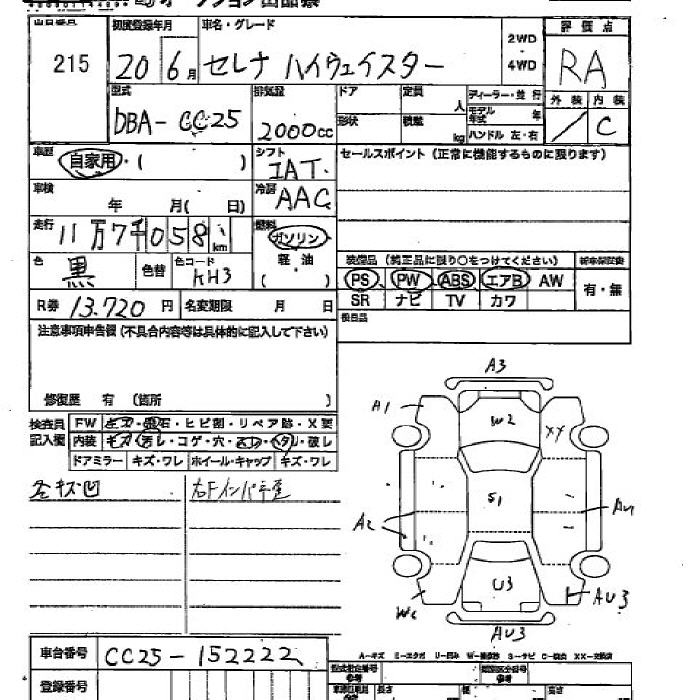 出品番号 初度登録年月 車名・グレード 評価点
215 20 6月 セレナ ハイウェイスター 2WD 4WD RA
型式 排気量 ドア 定員 ディーラー・並行 外装 内装
DBA-CC25 2000cc 人 モデル年式 年 / C
形状 積載 kg ハンドル 左・右
車歴 自家用・( ) シフト IAT. セールスポイント(正常に機能するものに限ります)
車検 年 月( 日) 冷房 AAC
走行 11万7千058km 燃料 ガソリン
軽油
( )
色 黒 色替 色コード KH3
装備品(純正品に限り○をつけてください) 新車保証書
PS PW ABS エアB AW 有・無
SR ナビ TV カワ
R券 13.720円 名変期限 月 日
後良品
注意事項申告欄(不具合内容等は具体的に記入して下さい)
修復歴 有 (箇所 )
検査員記入欄 FW キズ・飛石・ヒビ割・リペア跡・X要
内装 キズ・汚レ・コゲ・穴・ ・ヘタリ・破レ
ドアミラー キズ・ワレ ホイール・キャップ キズ・ワレ
各キズ凹 右Fインパ歪
A3
A1 W2 XX
S1
A2
U3 AU3
AU3
A-キズ U-凹み XX-交換済
車台番号 CC25-152222
型式指定番号 類別区分番号
登録番号 長さ 幅 高さ